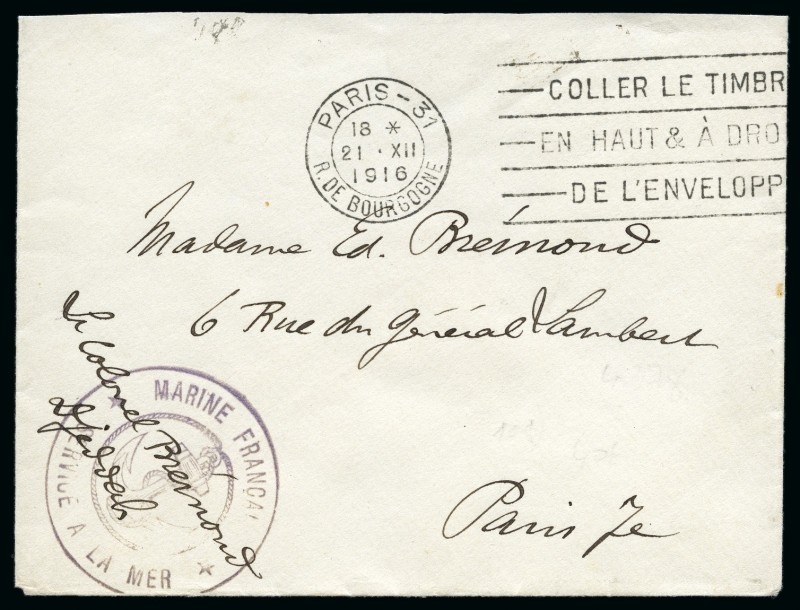 PARIS - 31
18 *
21 · XII
1916
R. DE BOURGOGNE
COLLER LE TIMBR
EN HAUT & À DRO
DE L'ENVELOPP
Madame Ed. Brémond
6 Rue du Général Lambert
Paris 7e
Le Colonel Brémond
Djeddah
MARINE FRANÇAI
SERVICE A LA MER